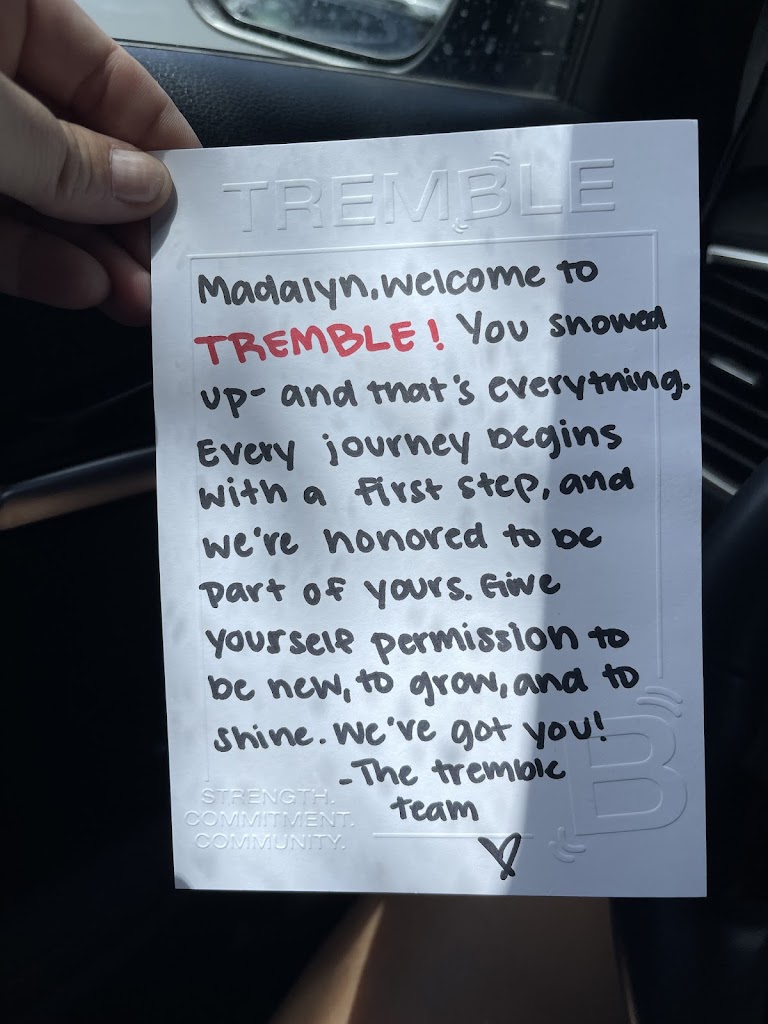 TREMBLE
Madalyn, welcome to
TREMBLE! You showed
up- and that's everything.
Every journey begins
with a first step, and
we're honored to be
part of yours. Give
yourself permission to
be new, to grow, and to
shine. We've got you!
-The tremble
team
STRENGTH.
COMMITMENT.
COMMUNITY.
B